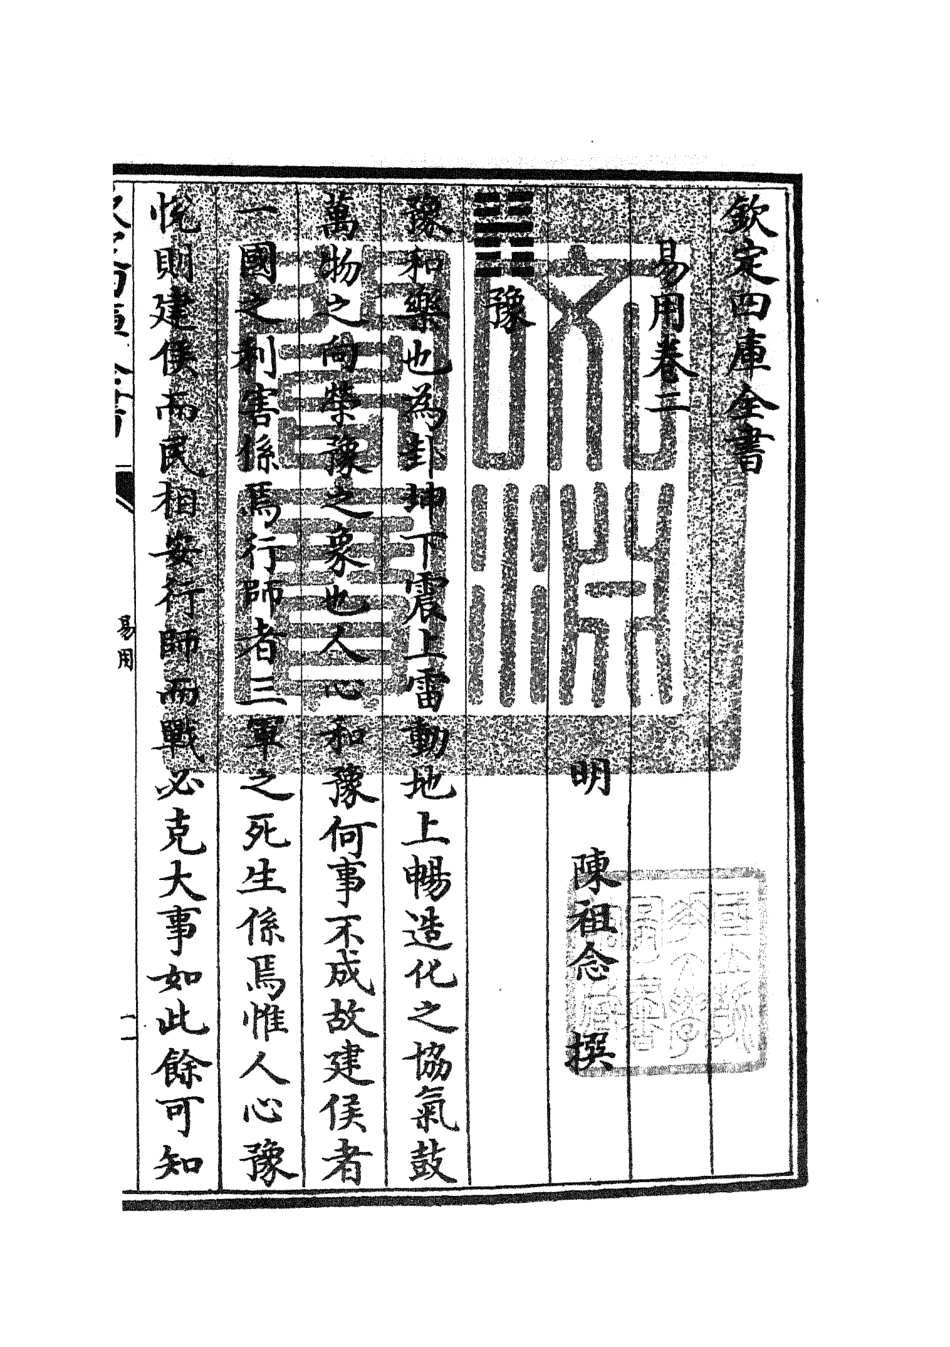 欽定四庫全書
易用卷二
明 陳祖念 撰
䷏豫
豫和樂也為卦坤下震上雷動地上暢造化之協氣鼓
萬物之向榮豫之象也人心和豫何事不成故建侯者
一國之利害係焉行師者三軍之死生係焉惟人心豫
悅則建侯而民相安行師而戰必克大事如此餘可知
易用
一
文淵閣寶